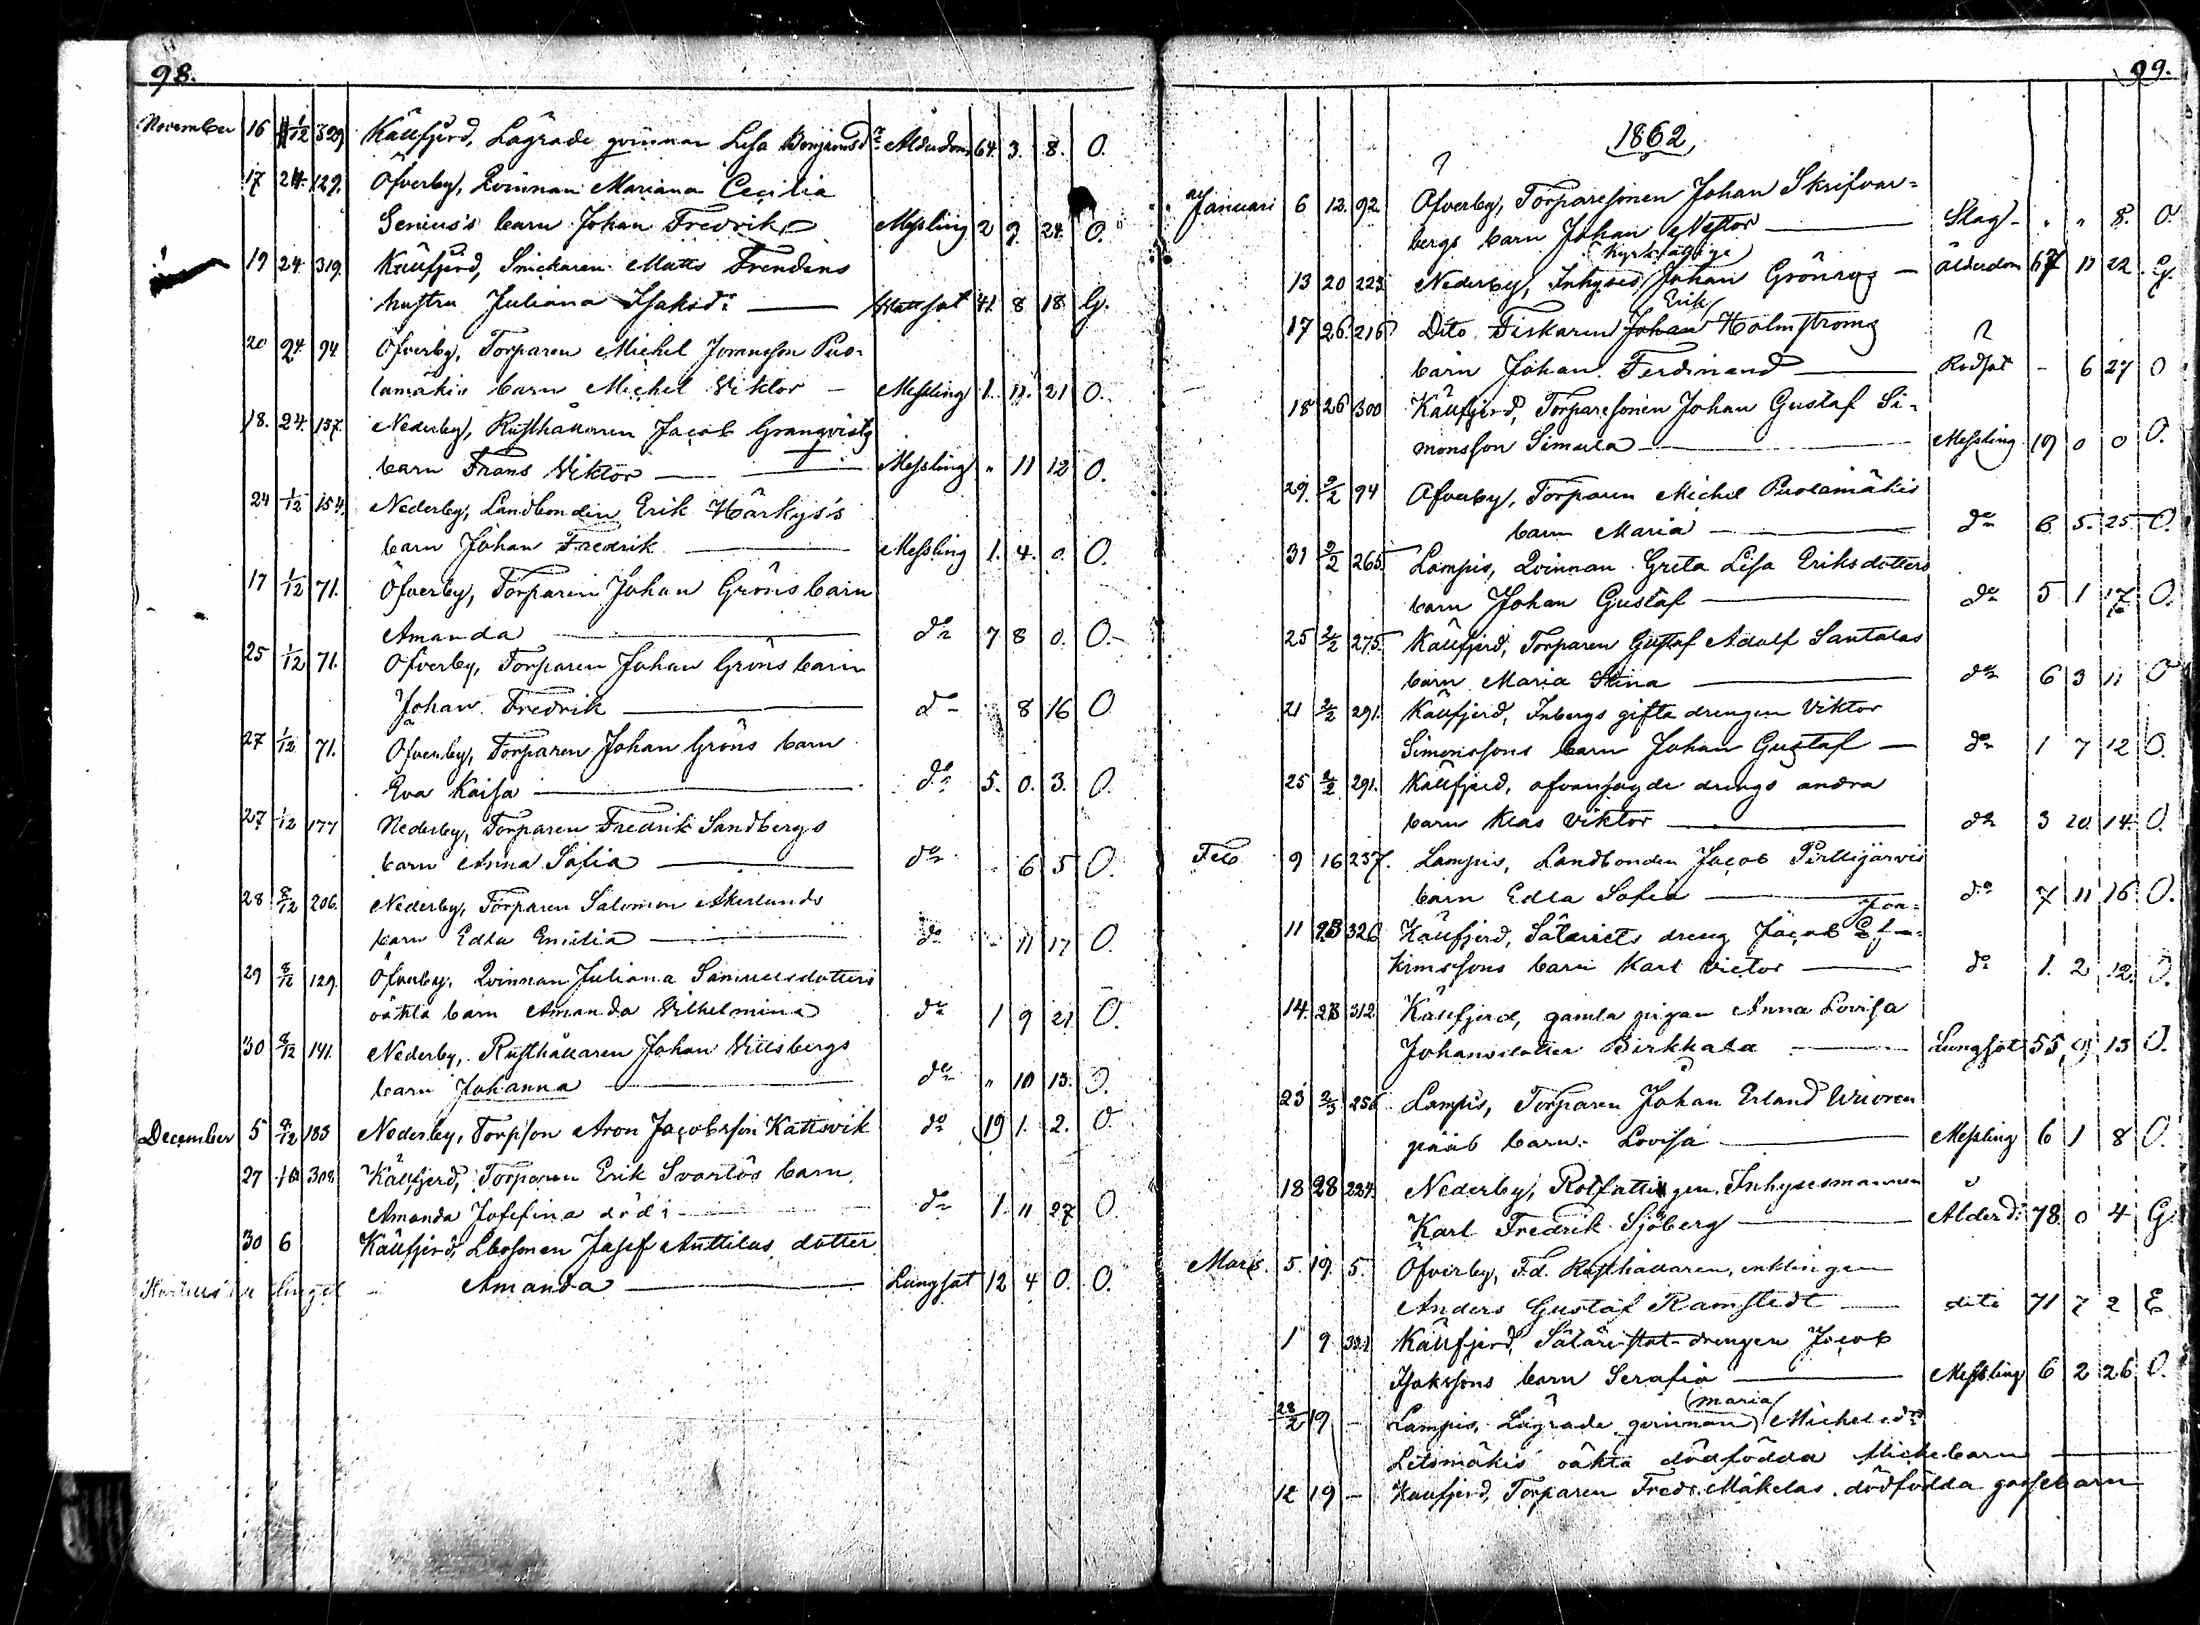 98.
November 16 1/12 329. Källfjerd, Lägrade qvinnan Lisa Benjamsd:r Ålderdom 64. 3. 8. O.
17 24. 129. Öfverby, Qvinnan Mariana Cecilia
Genius's barn Johan Fredrik Messling 2 9. 24. O.
19 24. 319. Källfjerd, Snickaren Matts Frendens
hustru Juliana Isaksd:r Wattsot 41. 8 18. G.
20 24. 94. Öfverby, Torparen Michel Joransson Puo-
lamäkis barn Michel Viktor Messling 1. 11. 21 O.
18. 24. 137. Nederby, Rusthållaren Jacob Granqvists
barn Frans Viktor Messling " 11 12 O.
24 1/12 154. Nederby, Landbonden Erik Härkys's
barn Johan Fredrik Messling 1. 4. 0. O.
17 1/12 71. Öfverby, Torparen Johan Gröns barn
Amanda do 7 8 0. O.
25 1/12 71. Öfverby, Torparen Johan Gröns barn
Johan Fredrik do 8 16 O
27 1/12 71. Öfverby, Torparen Johan Gröns barn
Eva Kaisa do 5. 0. 3. O.
27 1/12 177 Nederby, Torparen Fredrik Sandbergs
barn Anna Sofia do - 6 5 O.
28 8/12 206. Nederby, Torparen Salomon Åkerlunds
barn Edla Emilia do - 11 17 O.
29 8/12 129. Öfverby, Qvinnan Juliana Samuelsdotters
oäkta barn Amanda Vilhelmina do 1 9 21 O.
30 8/12 141. Nederby, Rusthållaren Johan Villsbergs
barn Johanna do " 10 13. O.
December 5 8/12 183 Nederby, Torpson Aron Jacobsson Kattsvik do 19 1. 2. O
27 308 Källfjerd, Torparen Erik Svartös barn
Amanda Josefina do 1. 11 27 O.
30 6 Källfjerd, Josef Anttilas dotter
Amanda Lungsot 12 4 0. O.
99.
1862
Januari 6 12. 92. Öfverby, Torparesonen Johan Skrifvar-
bergs barn Johan Nestor Slag - " " 8. O
13 20 223 Nederby, Inhyses Johan Grönros Ålderdom 67 11 22 G.
Erik
17 26. 216 Dito Fiskaren Johan Holmströms
barn Johan Ferdinand Rödsot - 6 27 O
18 26 300 Källfjerd, Torparesonen Johan Gustaf Si-
monsson Simula Messling 19 0 0 O.
29. 2/2 94 Öfverby, Torparen Michel Puolamäkis
barn Maria do 6 5. 25 O.
31 2/2 265. Lampis, Qvinnan Greta Lisa Eriksdotters
barn Johan Gustaf do 5 1 17 O.
25 2/2 275. Källfjerd, Torparen Gustaf Adolf Santalas
barn Maria Stina do 6 3 11 O
21 2/2 291. Källfjerd, Inbergs gifta drengen Viktor
Simonssons barn Johan Gustaf do 1 7 12 O.
25 2/2 291. Källfjerd, ofvansagde drengs andra
barn Klas Viktor do 3 10. 14. O.
Feb 9 16 237. Lampis, Landbonden Jacob Pirttijärvis
barn Edla Sofia do 7 11 16. O.
Joa-
11 23 326 Källfjerd, Säteriets dreng Jacob
kimssons barn Karl Victor do 1. 2 12. O.
14. 23 312 Källfjerd, gamla pigan Anna Lovisa
Johansdotter Birkkala Lungsot 55 13 O.
23 2/3 256 Lampis, Torparen Johan Erland Wuoren
pääs barn Lovisa Messling 6 1 8 O.
18 28 224. Nederby, Rotfattigen, Inhysesmannen
Karl Fredrik Sjöberg Ålderd: 78 0 4 G
Mars. 5. 19. 5. Öfverby, F.d. Rusthållaren, enklingen
Anders Gustaf Ramstedt dito 71 7 2 E
1 9 321 Källfjerd, Säteri stat-drengen Jacob
Isakssons barn Serafia Messling 6 2 26 O.
(maria)
28/2 19 - Lampis, Lägrade qvinnan Michelsd:rs
Letsmäkis oäkta dödfödda flickebarn
12 19 - Källfjerd, Torparen Fredr. Mäkelas dödfödda gossebarn